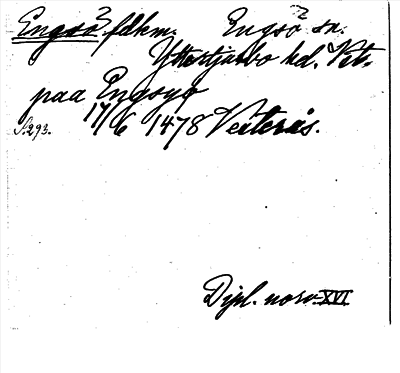 Engsö fdkm. Engsö sn.
Yttertjurbo hd. Vstm.
paa Engsyø
S. 293. 17/6 1478 Vesterås.
Dipl. norv. XVI